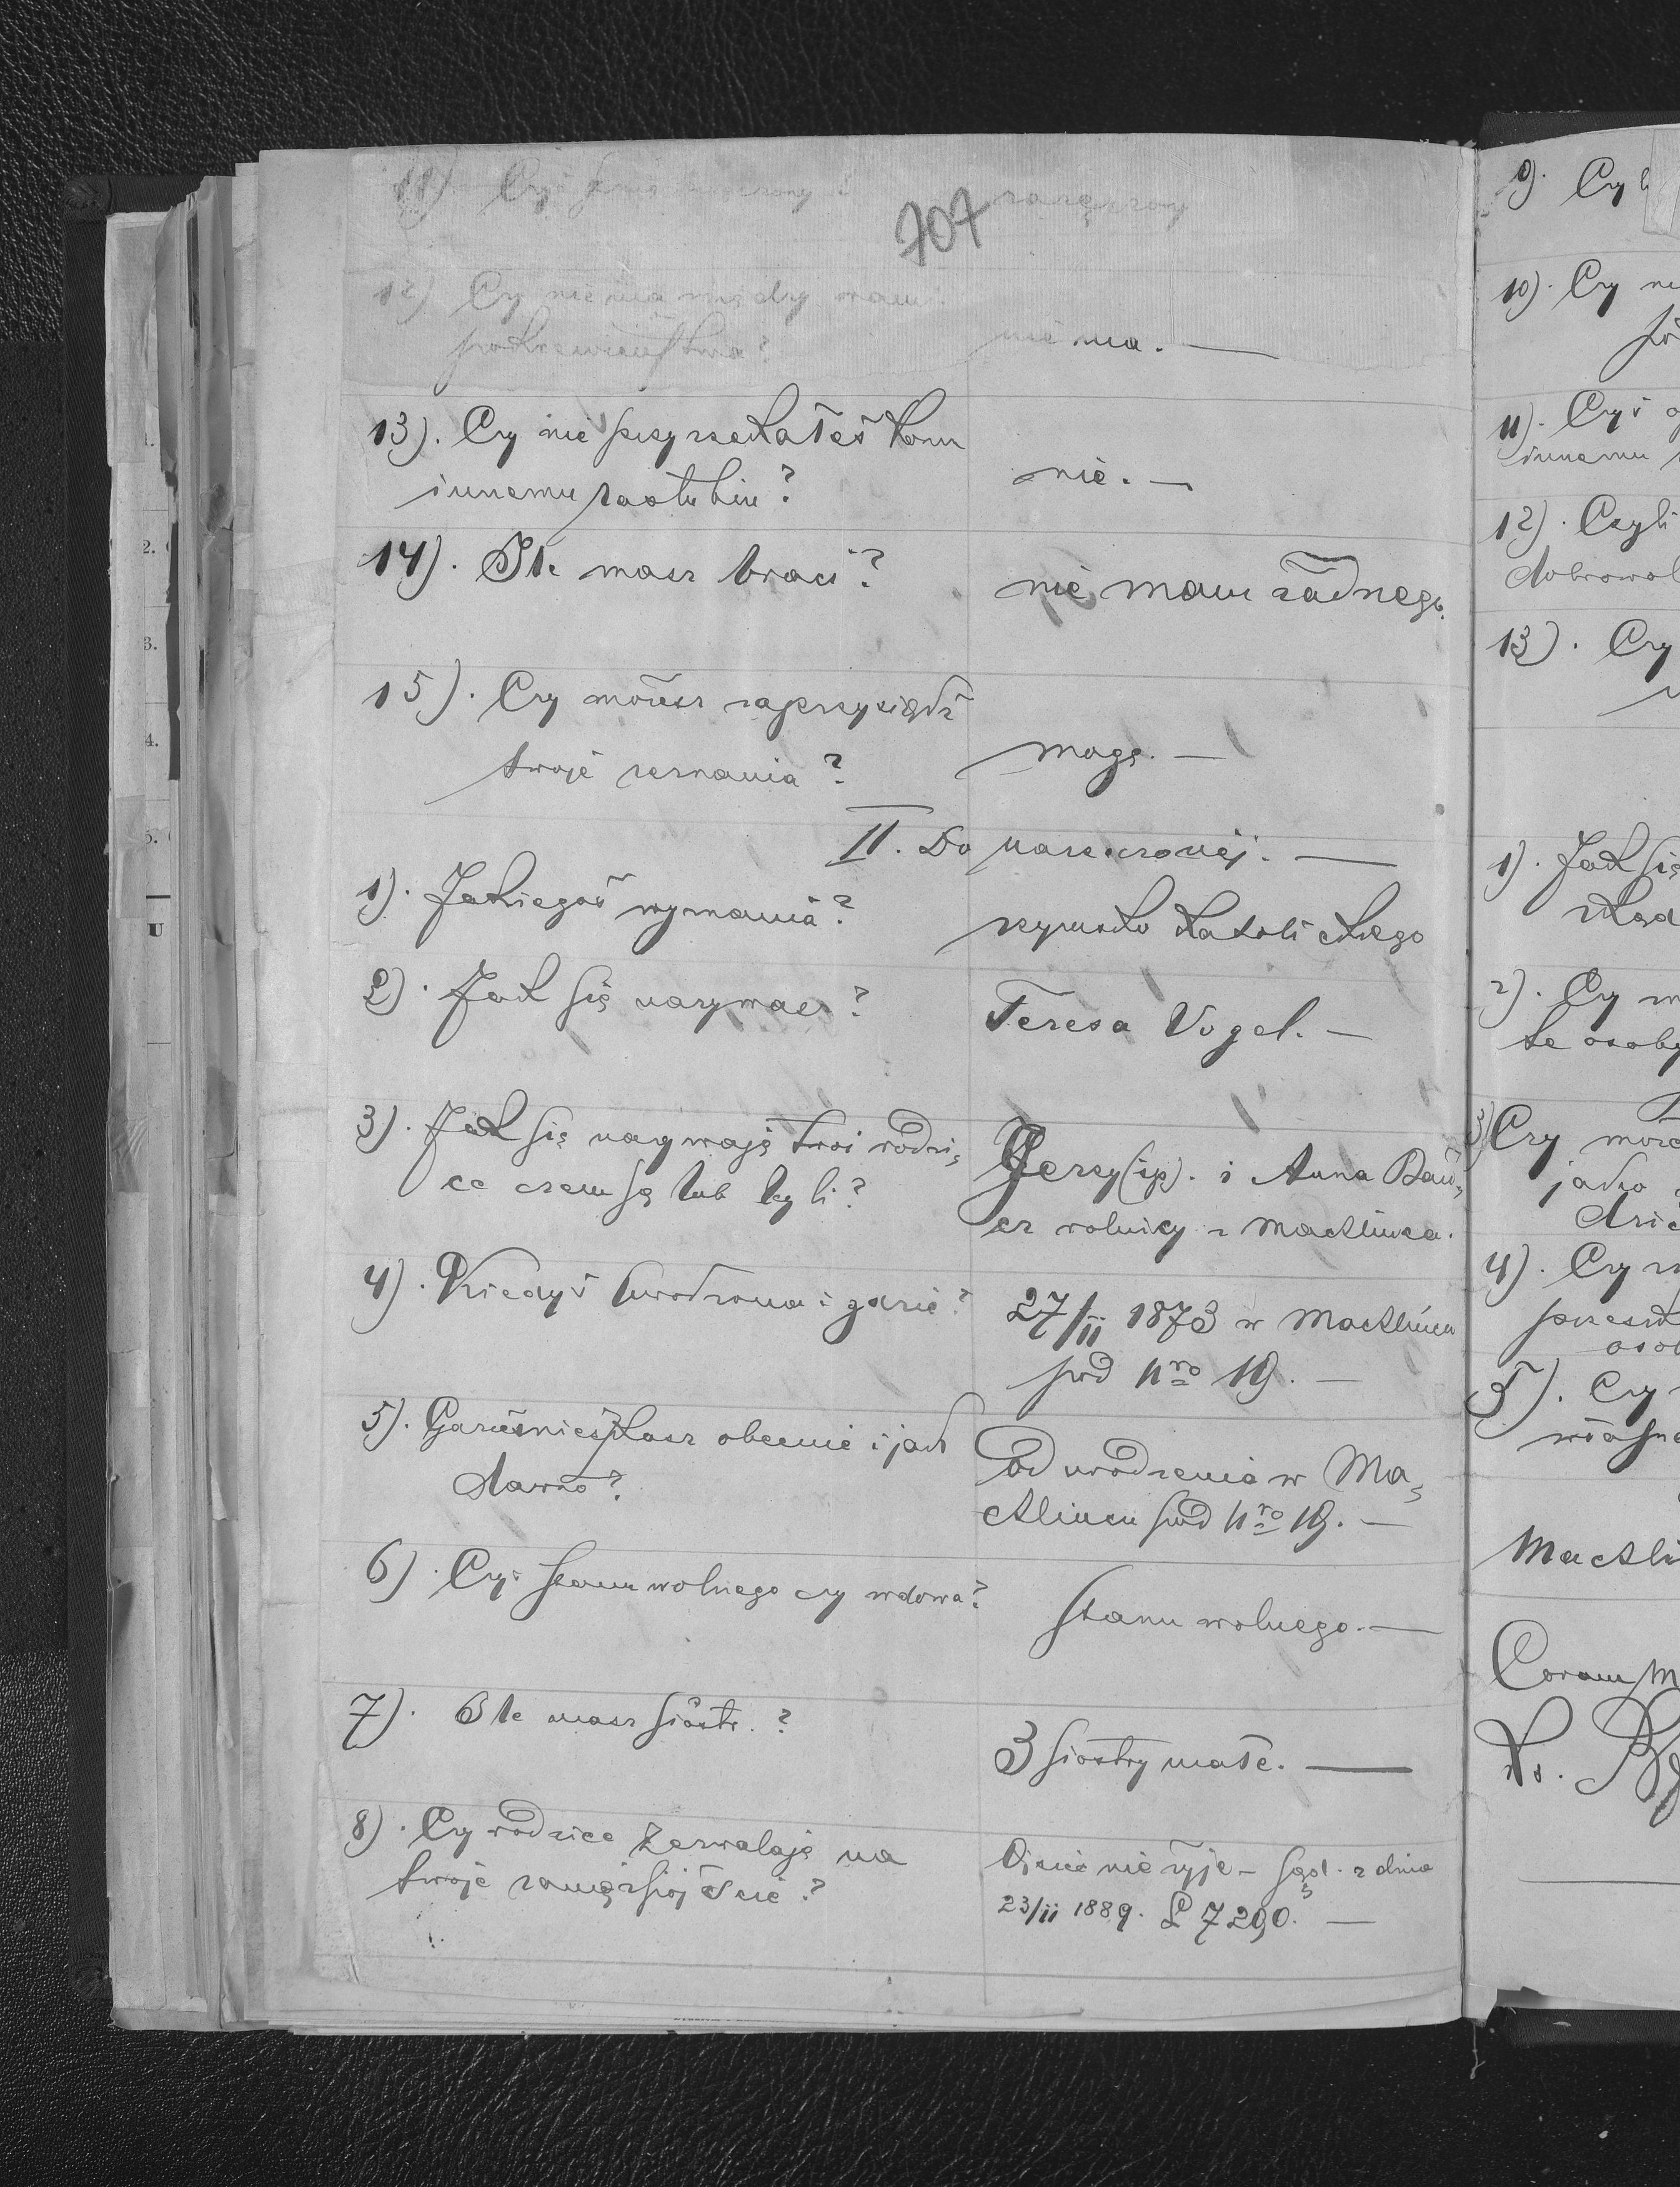 707
11) Czyś
12) Czy nie ma między wami
pokrewieństwa?
nie ma. —
13). Czy nie przyrzekałeś komu
innemu zaślubin?
nie. —
14). Ile masz braci?
nie mam żadnego.
15). Czy możesz zaprzysiądz
twoje zeznania?
mogę. —
II. Do narzeczonej. —
1). Jakiegoś wyznania?
rzymsko katolickiego
2). Jak się nazywasz?
Teresa Vogel. —
3). Jak się nazywają twoi rodzi-
ce czem są lub byli?
Jerzy (śp). i Anna Bau-
er rolnicy z Machlinca.
4). Kiedyś urodzona i gdzie?
27/II 1873 w Machlincu
pod nro 19. —
5). Gdzie mieszkasz obecnie i jak
dawno?
Od urodzenia w Ma-
chlincu pod nro 19. —
6). Czyś stanu wolnego czy wdowa?
stanu wolnego. —
7). Ile masz sióstr.?
3 siostry małe. —
8). Czy rodzice zezwalają na
twoje zamążpójście?
Ojciec nie żyje – sąd. z dnia
23/II 1889. L 7290. —
9). Czy
10). Czy
11). Czyś
innemu
12). Czyli
dobrowol
13). Czy
1). Jak się
skąd
2). Czy
te osoby
3) Czy może
4). Czy
5). Czy
Machli
Coram
Ks.
2.
3.
4.
5.
U